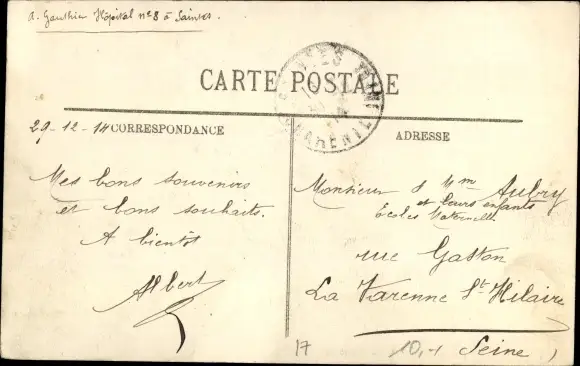 A. Gauthier Hôpital nº 8 à Saintes.
CARTE POSTALE
29-12-14 CORRESPONDANCE
Mes bons souvenirs
et bons souhaits.
A bientôt
Albert
ADRESSE
Monsieur & Mme Aubry
et leurs enfants
Ecoles Maternelle
rue Gaston
La Varenne St-Hilaire
Seine
17
10,-